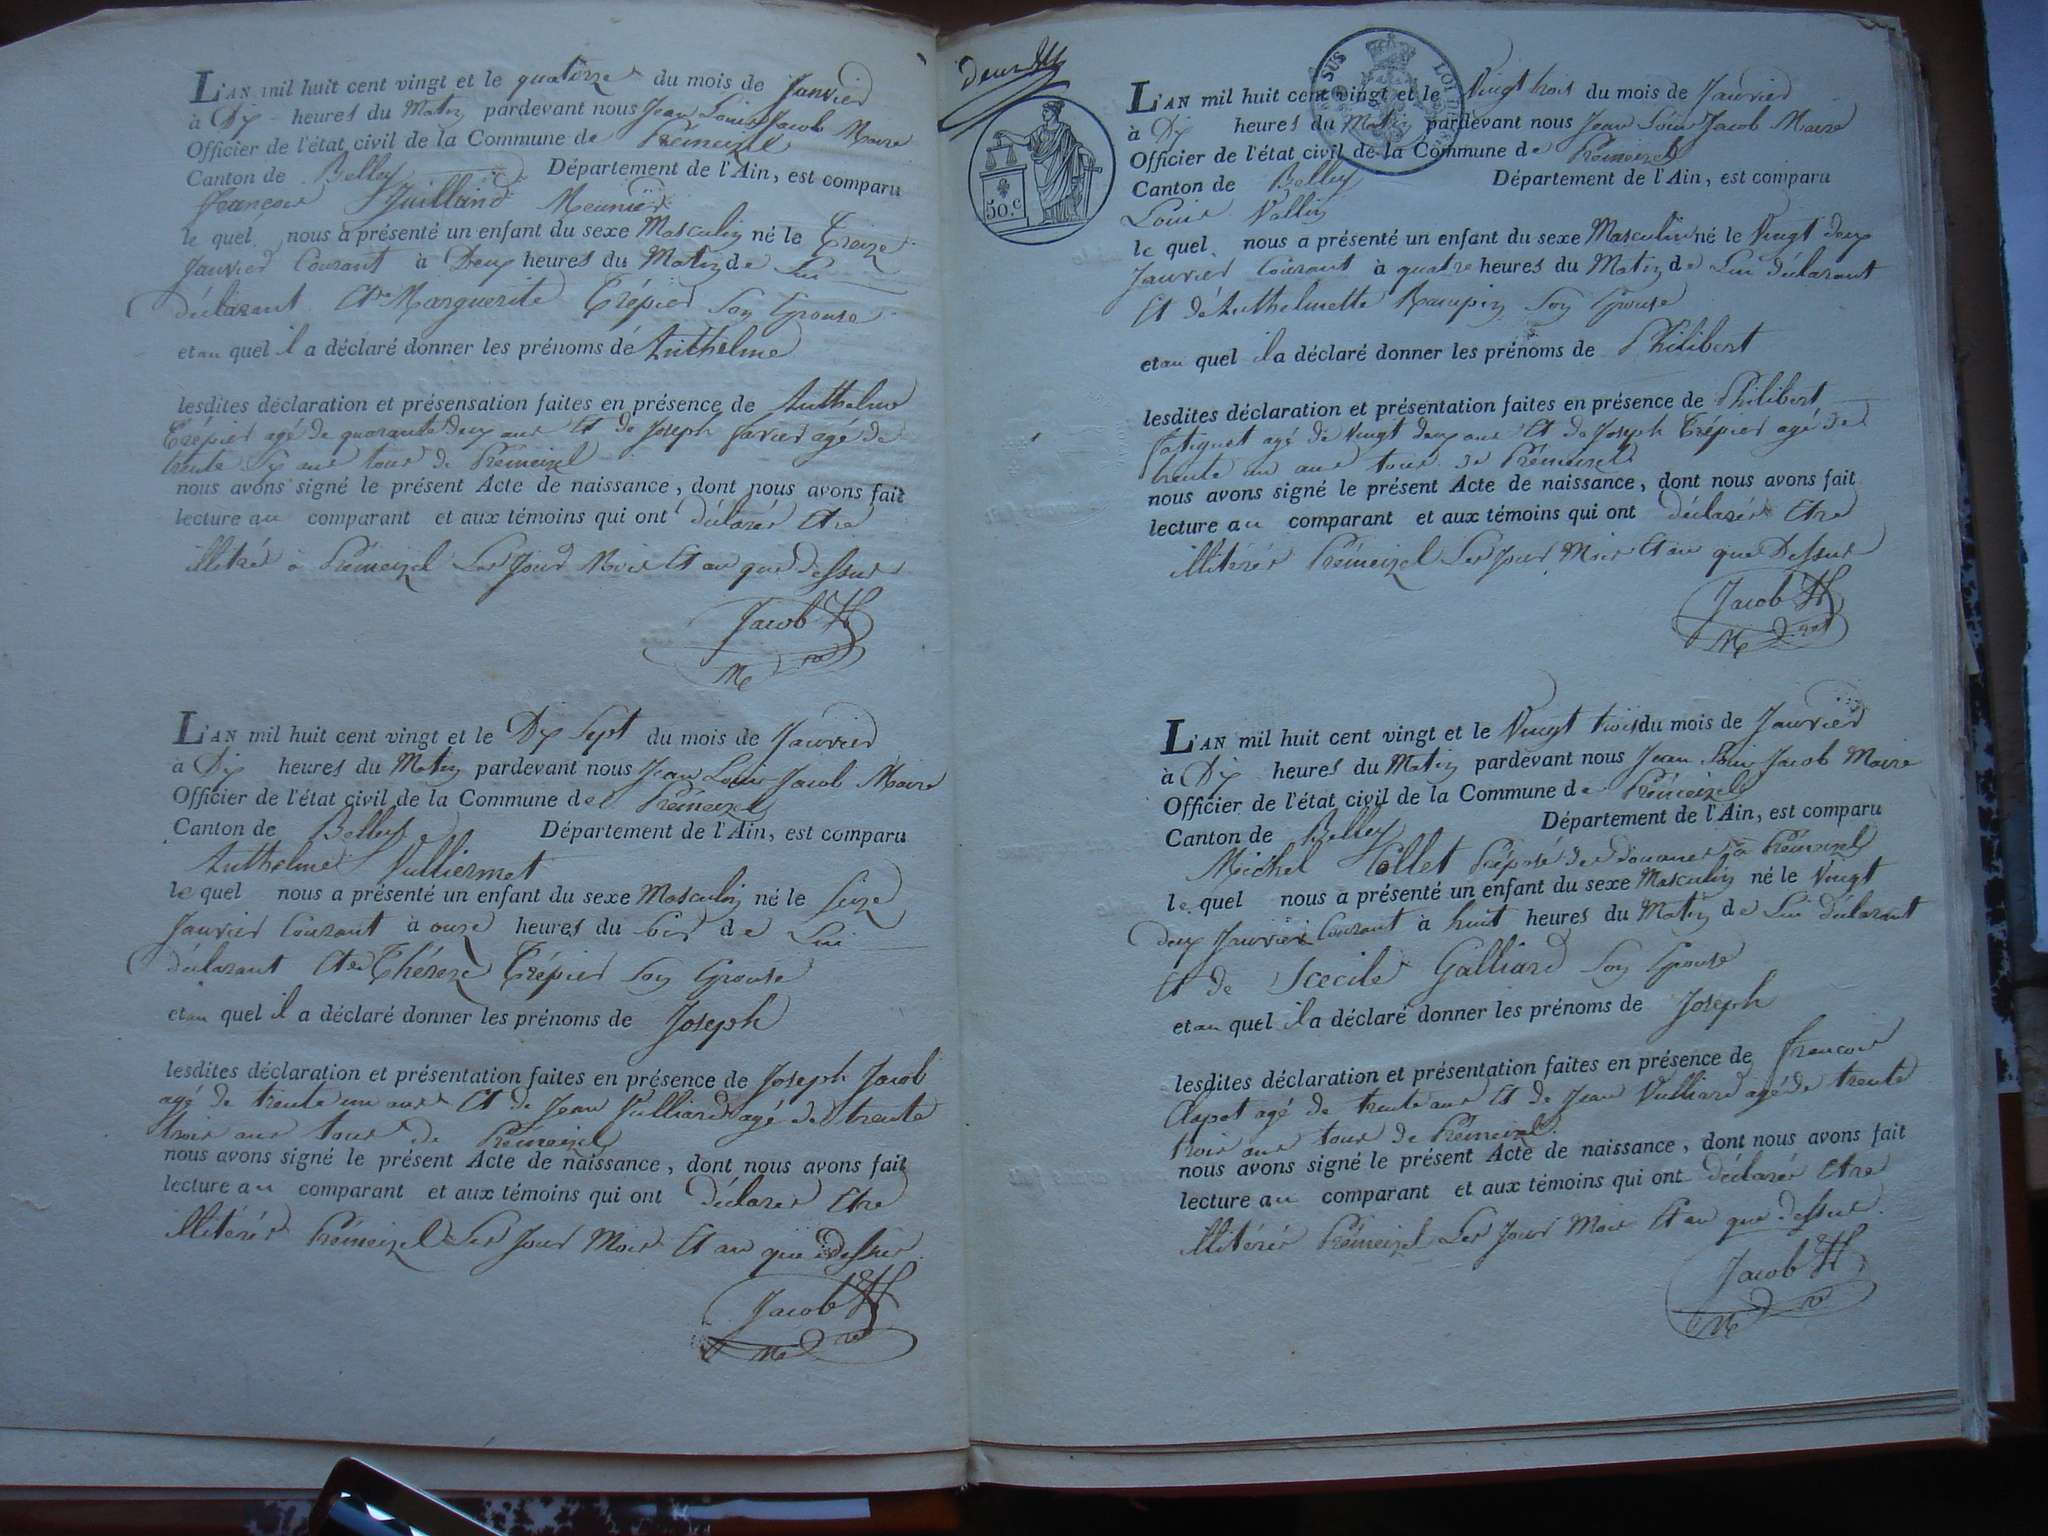 L'AN mil huit cent vingt et le quatorze du mois de Janvier
à Dix heures du Matin pardevant nous Jean Louis Jacob Maire
Officier de l'état civil de la Commune de Prémeizel
Canton de Belley Département de l'Ain, est comparu
françois Juilland Meunier
le quel nous a présenté un enfant du sexe Masculin né le Treize
Janvier Courant à Deux heures du Matin de Lui
déclarant Et de Marguerite Trépier Son Epouse
et au quel il a déclaré donner les prénoms de Anthelme
lesdites déclaration et présensation faites en présence de Anthelme
Trépier agé de quarante deux ans Et de Joseph favier agé de
trente Six ans tous de Prémeizel
nous avons signé le présent Acte de naissance, dont nous avons fait
lecture au comparant et aux témoins qui ont déclarés Etre
à Prémeizel Les Jour Mois Et an que dessus
Jacob
L'AN mil huit cent vingt et le Dix Sept du mois de Janvier
à Dix heures du Matin pardevant nous Jean Louis Jacob Maire
Officier de l'état civil de la Commune de Prémeizel
Canton de Belley Département de l'Ain, est comparu
Anthelme Vulliermet
le quel nous a présenté un enfant du sexe Masculin né le Seize
Janvier Courant à onze heures du Soir de Lui
déclarant Et de Thérèze Trépier Son Epouse
et au quel il a déclaré donner les prénoms de Joseph
lesdites déclaration et présentation faites en présence de Joseph Jacob
agé de trente un ans Et de Jean Vulliard agé de trente
trois ans tous de Prémeizel
nous avons signé le présent Acte de naissance, dont nous avons fait
lecture au comparant et aux témoins qui ont déclarés Etre
illitérés Prémeizel Les Jour Mois Et an que dessus
Jacob
SUS LOI
50.c
L'AN mil huit cent vingt et le Vingt trois du mois de Janvier
à Dix heures du Matin pardevant nous Jean Louis Jacob Maire
Officier de l'état civil de la Commune de Prémeizel
Canton de Belley Département de l'Ain, est comparu
Louis Vallin
le quel nous a présenté un enfant du sexe Masculin né le Vingt deux
Janvier Courant à quatre heures du Matin de Lui déclarant
Et de Anthelmette Son Epouse
et au quel il a déclaré donner les prénoms de Philibert
lesdites déclaration et présentation faites en présence de Philibert
agé de Vingt deux ans Et de Joseph Trépier agé de
trente un ans tous de Prémeizel
nous avons signé le présent Acte de naissance, dont nous avons fait
lecture au comparant et aux témoins qui ont déclarés Etre
illitérés Prémeizel Les Jour Mois Et an que Dessus
Jacob
L'AN mil huit cent vingt et le Vingt trois du mois de Janvier
à Dix heures du Matin pardevant nous Jean Louis Jacob Maire
Officier de l'état civil de la Commune de Prémeizel
Canton de Belley Département de l'Ain, est comparu
Michel Collet Préposé des douanes à Prémeizel
le quel nous a présenté un enfant du sexe Masculin né le Vingt
deux Janvier Courant à huit heures du Matin de Lui déclarant
Et de Scecile Galliard Son Epouse
et au quel il a déclaré donner les prénoms de Joseph
lesdites déclaration et présentation faites en présence de françois
Aspot agé de trente ans Et de Jean Vulliard agé de trente
trois ans tous de Prémeizel
nous avons signé le présent Acte de naissance, dont nous avons fait
lecture au comparant et aux témoins qui ont déclarés Etre
illitérés Prémeizel Les Jour Mois Et an que dessus.
Jacob